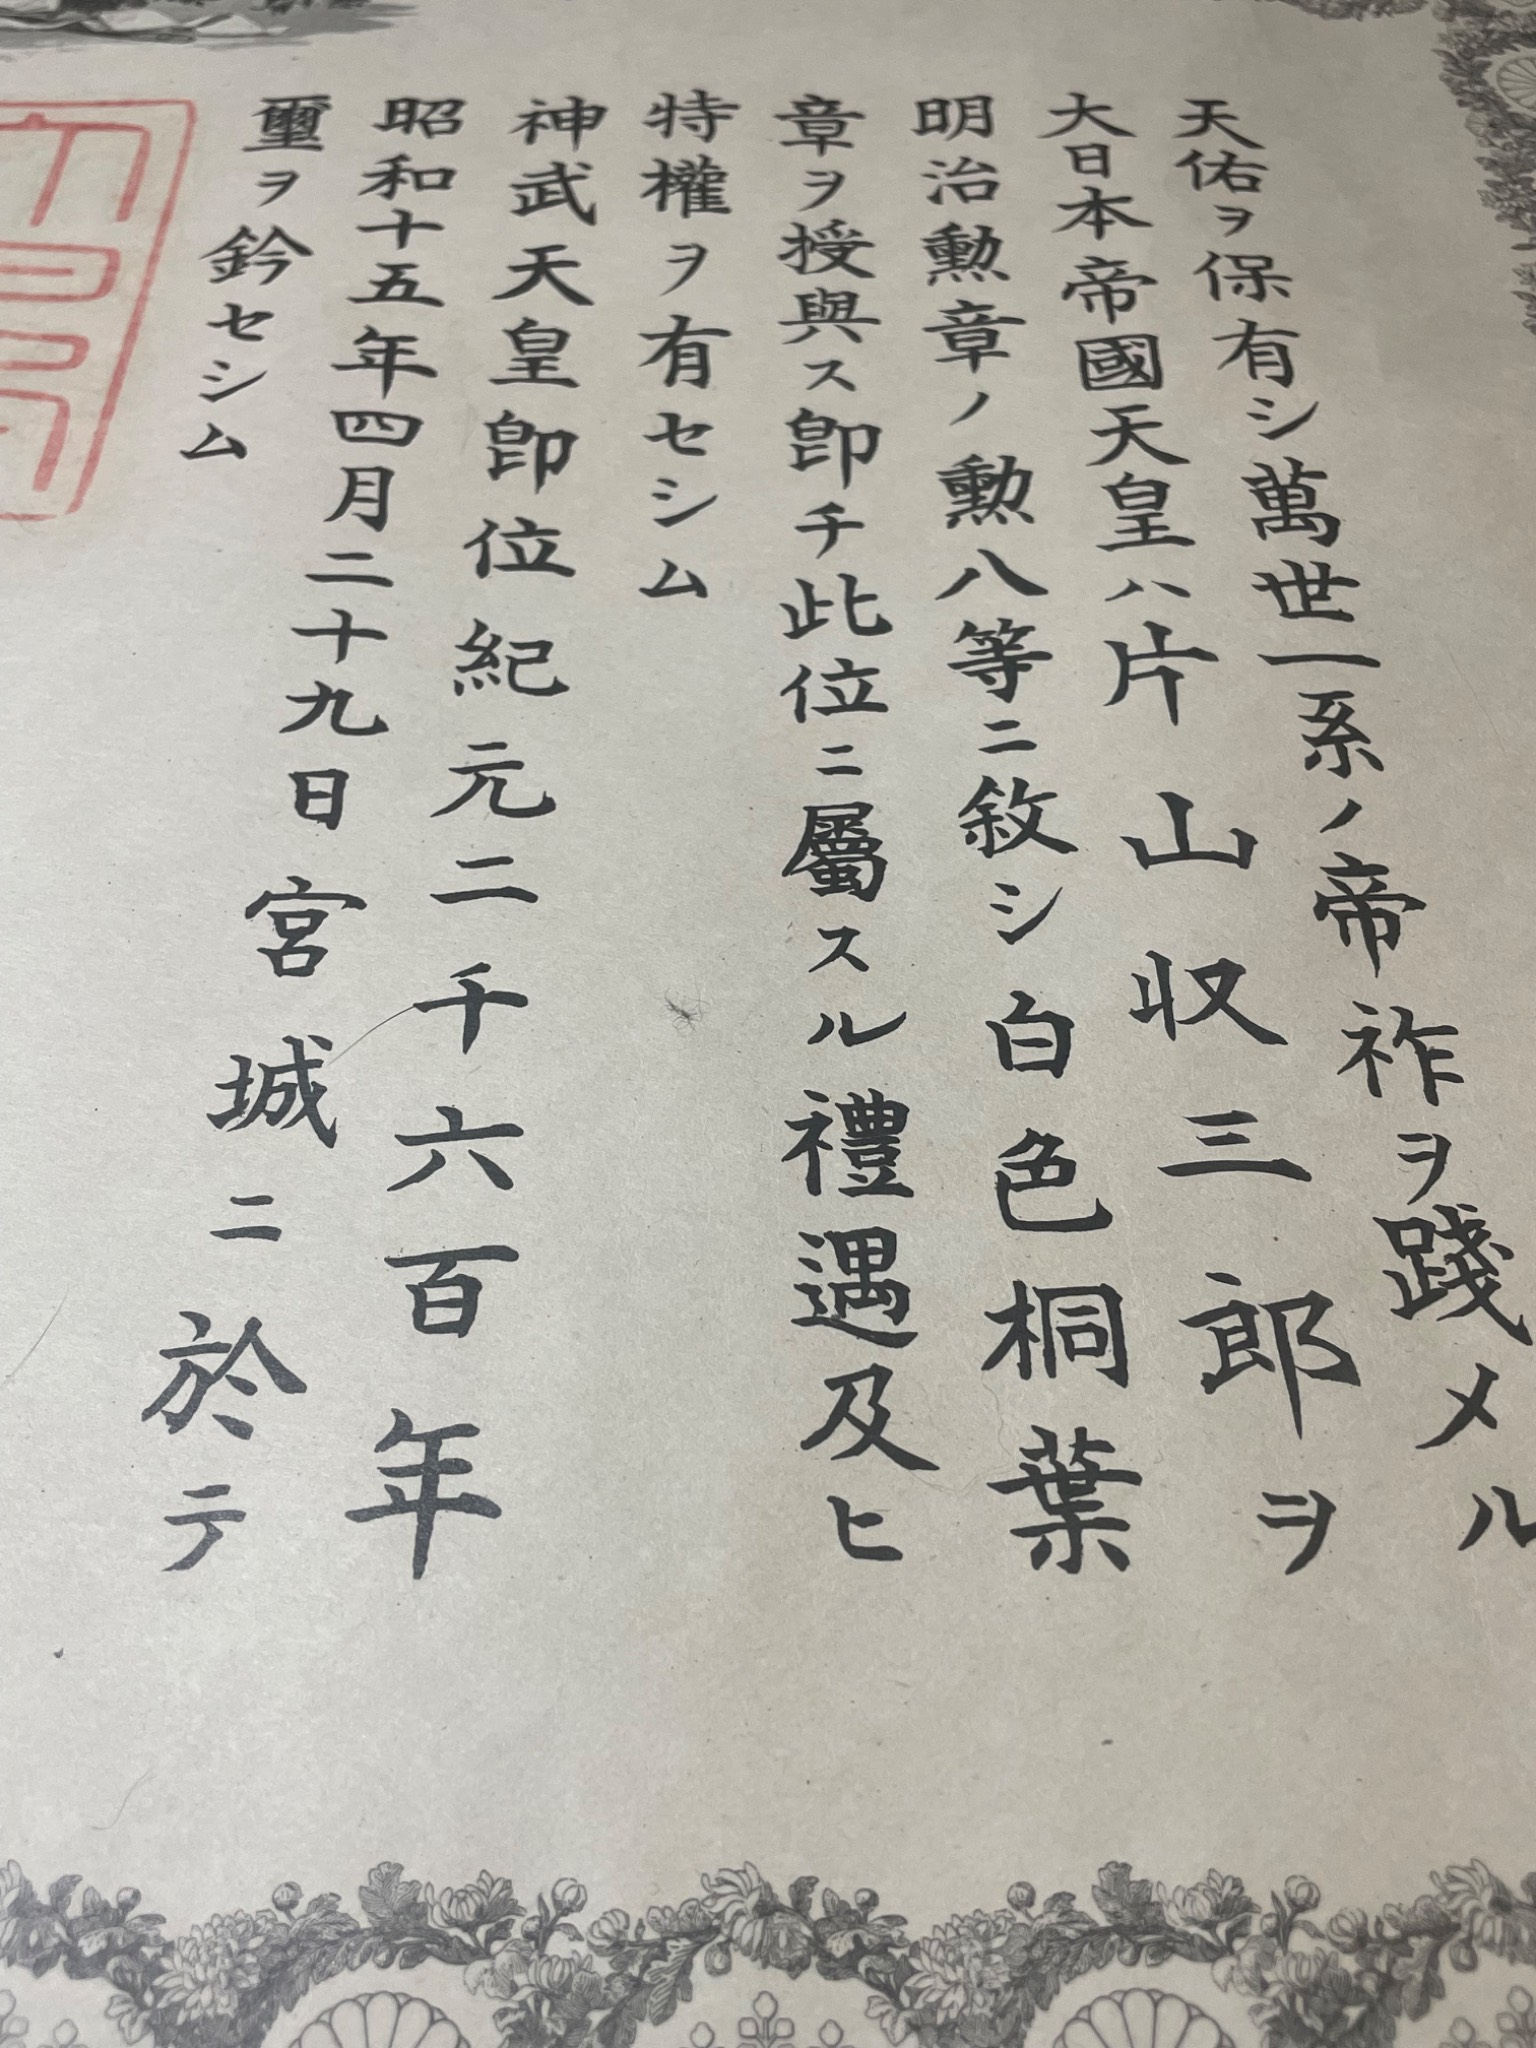 天佑ヲ保有シ萬世一系ノ帝祚ヲ踐メル
大日本帝國天皇ハ片山収三郎ヲ
明治勲章ノ勲八等ニ敘シ白色桐葉
章ヲ授與ス卽チ此位ニ屬スル禮遇及ヒ
特權ヲ有セシム
神武天皇卽位紀元二千六百年
昭和十五年四月二十九日宮城ニ於テ
璽ヲ鈐セシム